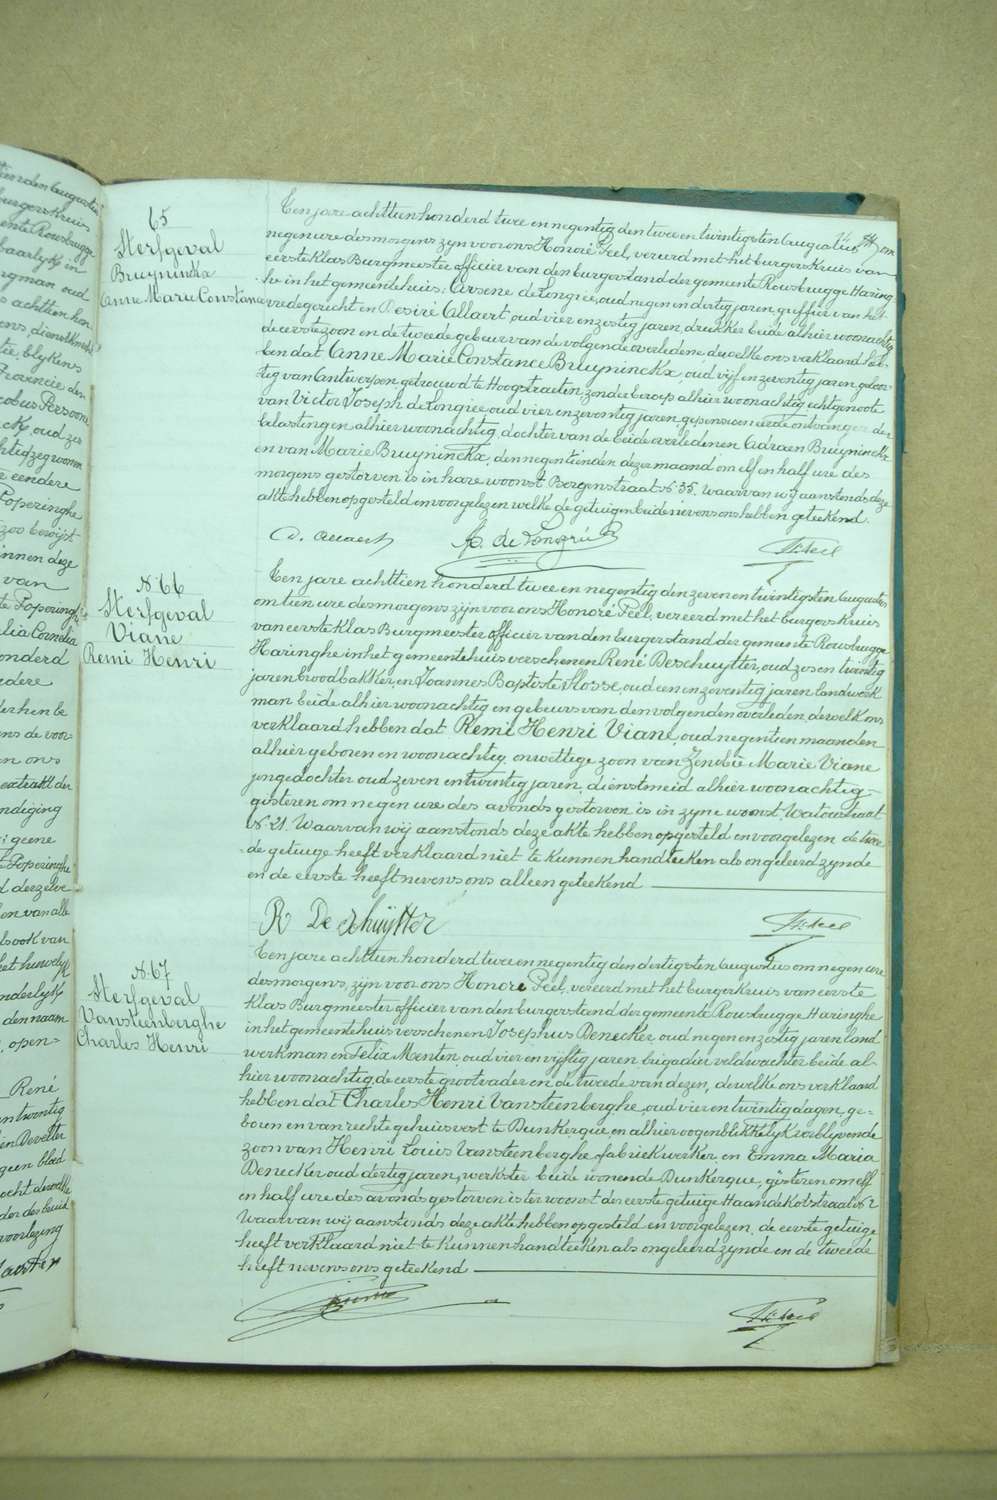 65
Sterfgeval
Bruyninckx
Anne Marie Constance
Ten jare achttien honderd twee en negentig den twee en twintigsten Augustus om
negen ure des morgens zyn voor ons Honoré Feel, vereerd met het burgerskruis van
eerste klas Burgmeester officier van den burgerstand der gemeente Rousbrugge Haring
he in het gemeentehuis: Arsene de Longrée, oud negen en dertig jaren, greffier van het
vredegerecht en Desiré Allaert, oud vier en zestig jaren, drukker beide alhier woonachtig
de eerste zoon en de tweede gebeur van de volgende overledene dewelke ons verklaard heb-
ben dat Anne Marie Constance Bruyninckx, oud vijf en zeventig jaren, geboor-
tig van Antwerpen getrouwd te Hoogstraeten, zonder beroep alhier woonachtig echtgenoote
van Victor Joseph de Longrée oud vier en zeventig jaren, gepensioneerde ontvanger der
belastingen alhier woonachtig, dochter van de beide overledenen Adriaen Bruyninckx
en van Marie Bruyninckx, den negentienden dezer maand om elf en half ure des
morgens gestorven is in hare woonst Bergenstraat N. 35. Waarvan wij aanstonds deze
akte hebben opgesteld en voorgelezen welke de getuigen beide nevens ons hebben geteekend.
D. Allaert A. de Longrée H. Feel
N. 66
Sterfgeval
Viane
Remi Henri
Ten jare achttien honderd twee en negentig den zeven en twintigsten Augustus
om tien ure des morgens zijn voor ons Honoré Feel, vereerd met het burgerskruis
van eerste klas Burgmeester officier van den burgerstand der gemeente Rousbrugge
Haringhe in het gemeentehuis verschenen René Deschuytter, oud zes en twintig
jaren brood bakker, en Joannes Baptiste Flosse, oud een en zeventig jaren landwerk
man beide alhier woonachtig en gebeurs van den volgenden overleden, dewelk ons
verklaard hebben dat Remi Henri Viane, oud negentien maanden
alhier geboren en woonachtig, onwettige zoon van Zenobie Marie Viane
jongedochter oud zeven en twintig jaren, dienstmeid alhier woonachtig
gisteren om negen ure des avonds gestorven is in zyne woonst, Watoustraat
N. 21. Waarvan wij aanstonds deze akte hebben opgesteld en voorgelezen de twee
de getuige heeft verklaard niet te kunnen handteeken als ongeleerd zynde
en de eerste heeft nevens ons alleen geteekend
R Deschuÿtter H. Feel
N. 67
Sterfgeval
Vansteenberghe
Charles Henri
Ten jare achttien honderd twee en negentig den dertigsten Augustus om negen ure
des morgens, zyn voor ons Honoré Feel, vereerd met het burgerkruis van eerste
klas Burgmeester officier van den burgerstand der gemeente Rousbrugge Haringhe
in het gemeentehuis verschenen Josephus Denecker, oud negen en zestig jaren, land
werkman en Felix Menten, oud vier en vijftig jaren, brigadier veldwachter beide al-
hier woonachtig, de eerste grootvader en de tweede van dezen, dewelke ons verklaard
hebben dat Charles Henri Vansteenberghe, oud vier en twintig dagen, ge-
boren en van rechte gehuisvest te Dunkerque, en alhier oogenblikkelyk verblyvende
zoon van Henri Louis Vansteenberghe, fabriekwerker en Emma Maria
Denecker oud dertig jaren, werkster beide wonende Dunkerque, gisteren om elf
en half ure des avonds gestorven is ter woonst der eerste getuige Haandekotstraat N. 2
Waarvan wij aanstonds deze akte hebben opgesteld en voorgelezen, de eerste getuige
heeft verklaard niet te kunnen handteeken als ongeleerd zynde en de tweede
heeft nevens ons geteekend
H. Feel